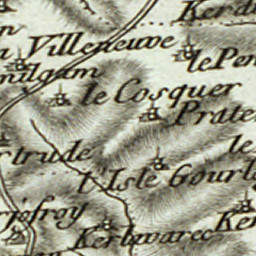 Kerd
Villeneuve
le Pen
nilgam
le Cosquer
Prate
trude
le
l'Isle Gourl
rjofroy
Ker
Kerlavarec